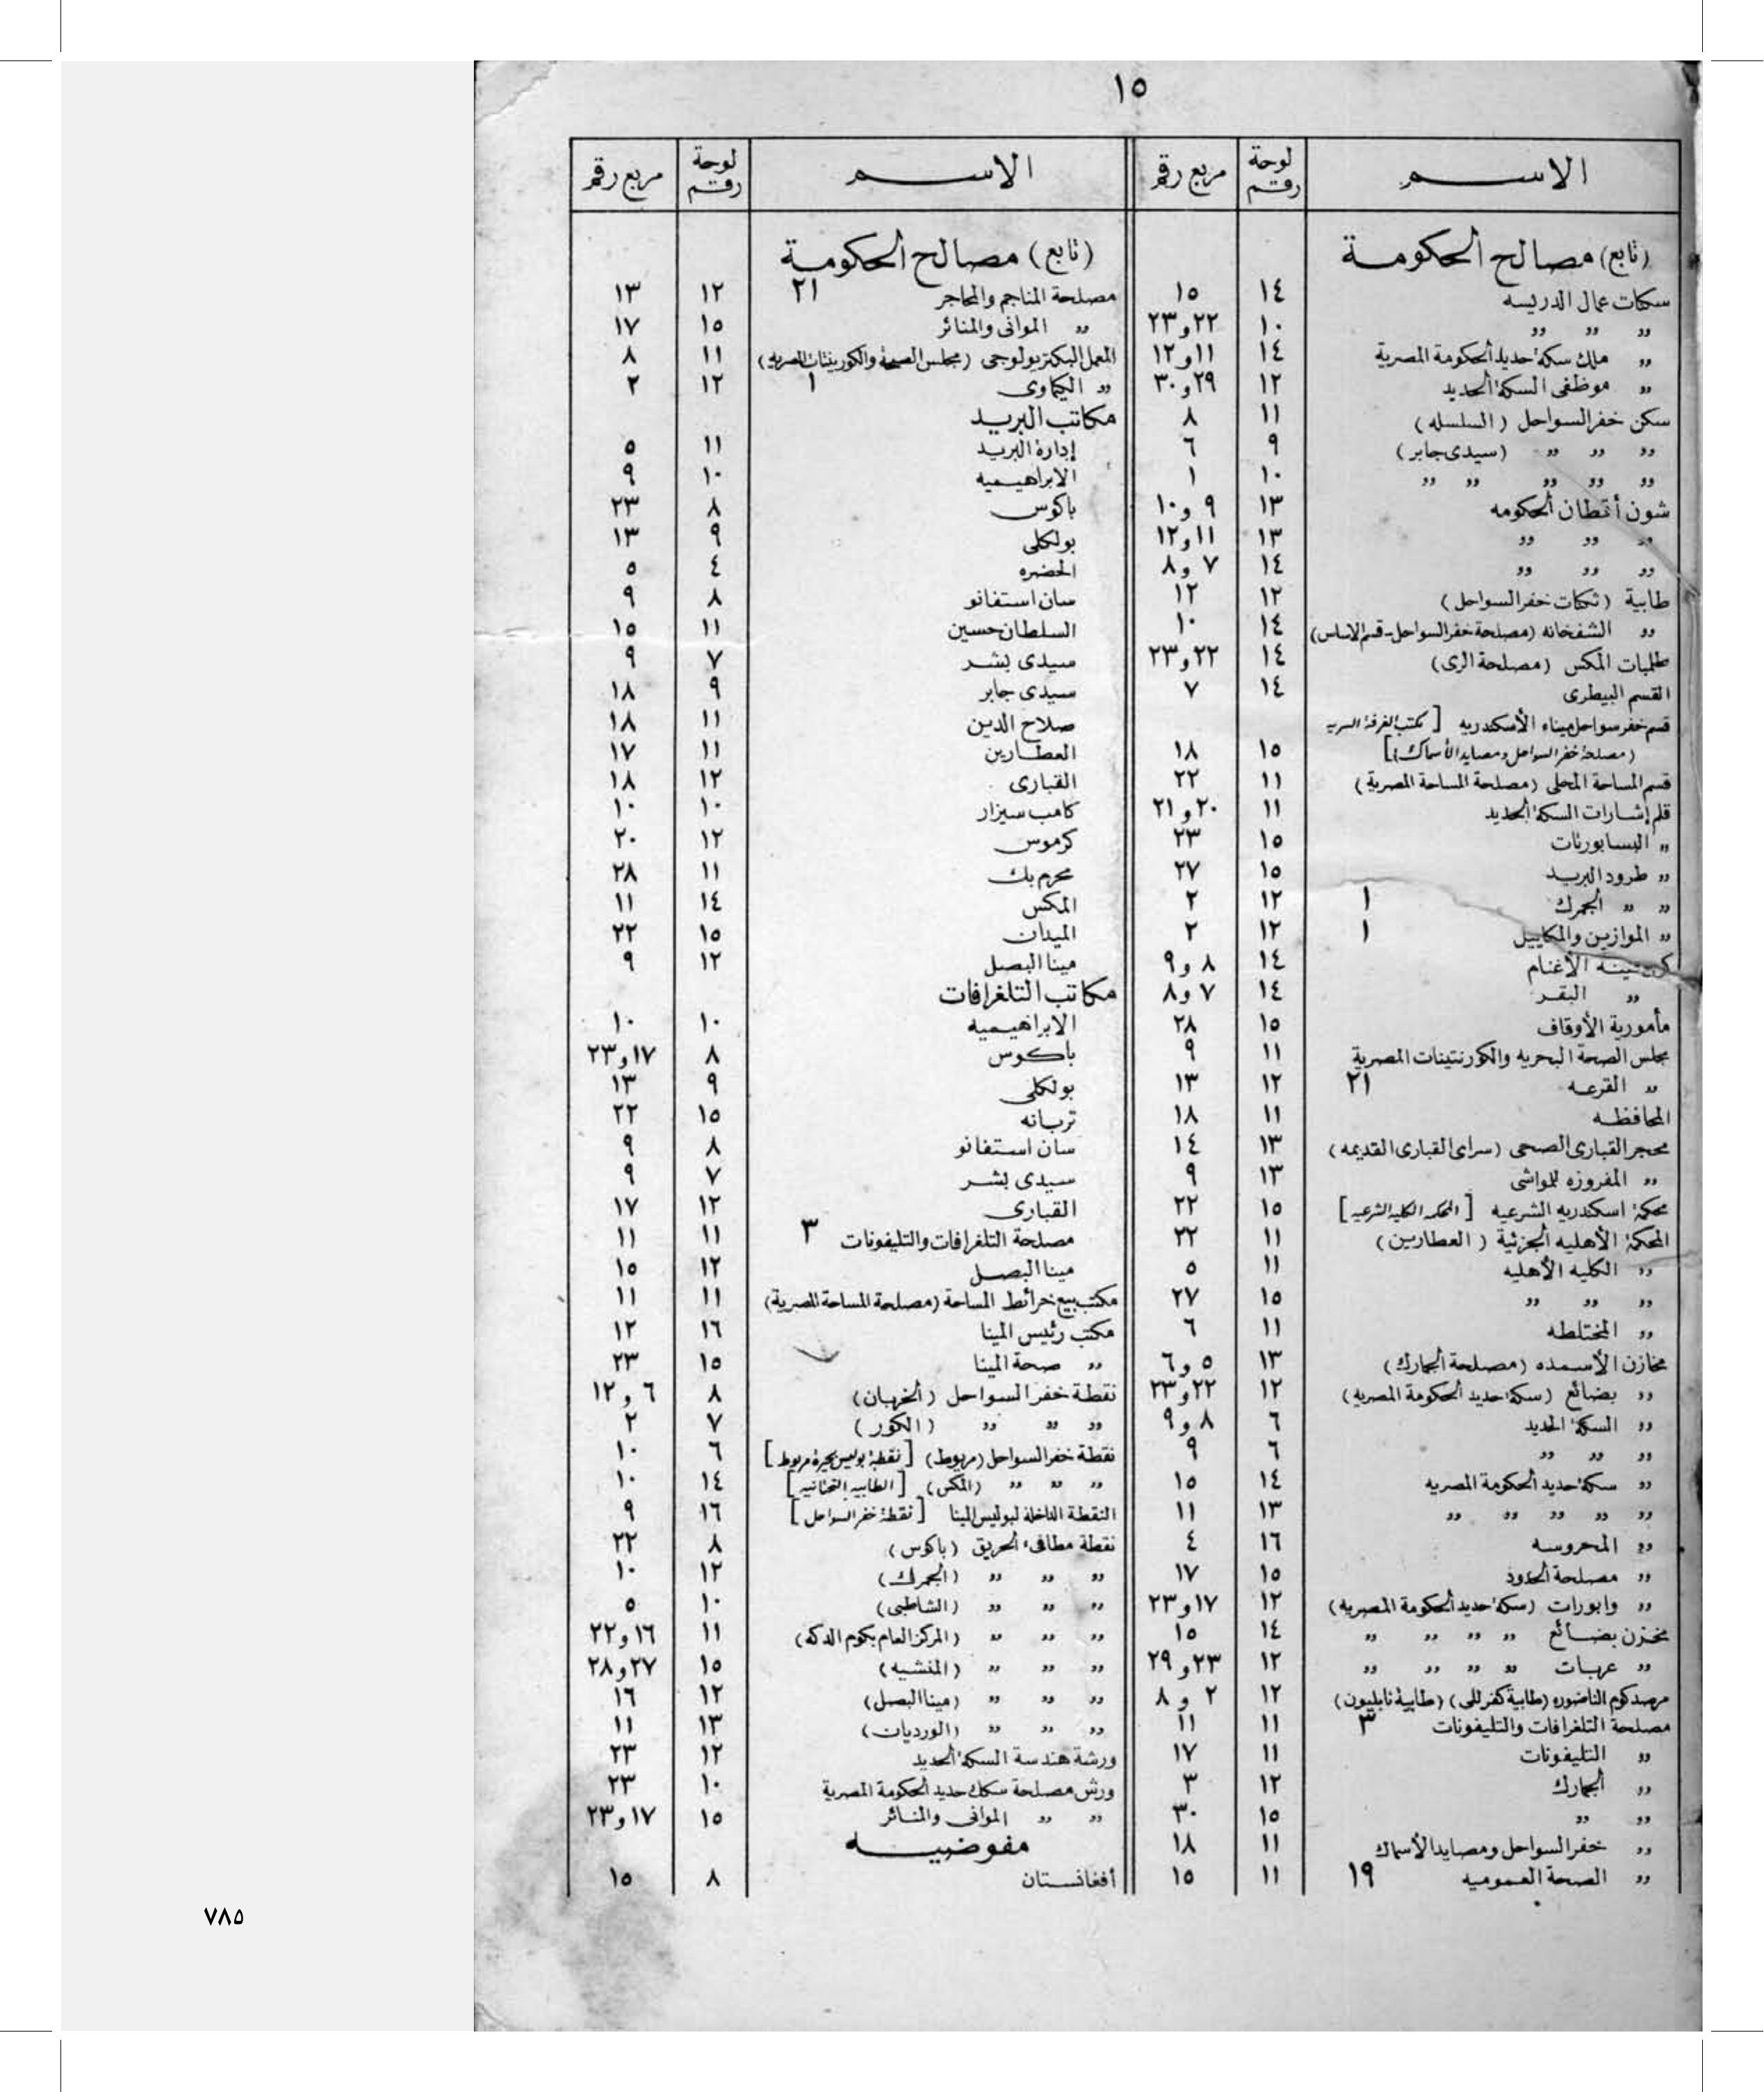 ١٥
الاســـم لوحة رقم مربع رقم
(تابع) مصالح الحكومة
سكنات عمال الدريسه ١٤ ١٥
„ „ „ ١٠ ٢٢ و ٢٣
„ ملك سكة حديد الحكومة المصرية ١٤ ١١ و ١٢
„ موظفى السكة الحديد ١٢ ٢٩ و ٣٠
سكن خفر السواحل (السلسله) ١١ ٨
„ „ „ (سيدى جابر) ٩ ٦
„ „ „ „ „ ١٠ ١
شون أقطان الحكومه ١٣ ٩ و ١٠
„ „ „ ١٣ ١١ و ١٢
„ „ „ ١٤ ٧ و ٨
طابية (ثكنات خفر السواحل) ١٢ ١٢
„ الشفخانه (مصلحة خفر السواحل - قسم الاساس) ١٤ ١٠
طلمبات المكس (مصلحة الرى) ١٤ ٢٢ و ٢٣
القسم البيطرى ١٤ ٧
قسم خفر سواحل ميناء الأسكندريه [مكتب الغرفة السريه
(مصلحة خفر السواحل ومصايد الأسماك)] ١٥ ١٨
قسم المساحة المحلى (مصلحة المساحة المصرية) ١١ ٢٢
قلم إشارات السكة الحديد ١١ ٢٠ و ٢١
„ البسابورتات ١٥ ٢٣
„ طرود البريد ١٥ ٢٧
„ „ الجمرك ١ ١٢ ٢
„ الموازين والمكاييل ١ ١٢ ٢
كرنتينة الأغنام ١٤ ٨ و ٩
„ البقر ١٤ ٧ و ٨
مأمورية الأوقاف ١٥ ٢٨
مجلس الصحة البحريه والكورنتينات المصرية ١١ ٩
„ القرعه ٢١ ١٢ ١٣
المحافظه ١١ ١٨
محجر القبارى الصحى (سراى القبارى القديمه) ١٣ ١٤
„ المفروزه للمواشى ١٣ ٩
محكمة اسكندريه الشرعيه [المحكمة الكليه الشرعيه] ١٥ ٢٢
المحكمة الأهليه الجزئية (العطارين) ١١ ٢٢
„ الكليه الأهليه ١١ ٥
„ „ „ ١٥ ٢٧
„ المختلطه ١١ ٦
مخازن الأسمده (مصلحة الجمارك) ١٣ ٥ و ٦
„ بضائع (سكة حديد الحكومة المصرية) ١٢ ٢٢ و ٢٣
„ السكة الحديد ٦ ٨ و ٩
„ „ „ ٦ ٩
„ سكة حديد الحكومة المصريه ١٤ ١٥
„ „ „ „ „ ١٣ ١١
„ المحروسه ١٦ ٤
„ مصلحة الحدود ١٥ ١٧
„ وابورات (سكة حديد الحكومة المصريه) ١٢ ١٧ و ٢٣
مخزن بضائع „ „ „ „ ١٤ ١٥
„ عربات „ „ „ „ ١٢ ٢٣ و ٢٩
مرصد كوم الناضوره (طابية كفرللى) (طابية نابليون) ١٢ ٢ و ٨
مصلحة التلغرافات والتليفونات ٣ ١١ ١١
„ التليفونات ١١ ١٧
„ الجمارك ١٢ ٣
„ „ ١٥ ٣٠
„ خفر السواحل ومصايد الأسماك ١١ ١٨
„ الصحة العموميه ١٩ ١١ ١٥
الاســـم لوحة رقم مربع رقم
(تابع) مصالح الحكومة
مصلحة المناجم والمحاجر ٢١ ١٢ ١٣
„ الموانى والمنائر ١٥ ١٧
المعمل البكتريولوجى (مجلس الصحة والكورنتينات المصريه) ١١ ٨
„ الكيماوى ١ ١٢ ٢
مكاتب البريد
إدارة البريد ١١ ٥
الابراهيميه ١٠ ٩
باكوس ٨ ٢٣
بولكلى ٩ ١٣
الحضره ٤ ٥
سان استفانو ٨ ٩
السلطان حسين ١١ ١٥
سيدى بشر ٧ ٩
سيدى جابر ٩ ١٨
صلاح الدين ١١ ١٨
العطارين ١١ ١٧
القبارى ١٢ ١٨
كامب سيزار ١٠ ١٠
كرموس ١٢ ٢٠
محرم بك ١١ ٢٨
المكس ١٤ ١١
الميدان ١٥ ٢٢
مينا البصل ١٢ ٩
مكاتب التلغرافات
الابراهيميه ١٠ ١٠
باكوس ٨ ١٧ و ٢٣
بولكلى ٩ ١٣
تربانه ١٥ ٢٢
سان استفانو ٨ ٩
سيدى بشر ٧ ٩
القبارى ١٢ ١٧
مصلحة التلغرافات والتليفونات ٣ ١١ ١١
مينا البصل ١٢ ١٥
مكتب بيع خرائط المساحة (مصلحة المساحة المصرية) ١١ ١١
مكتب رئيس المينا ١٦ ١٢
„ صحة المينا ١٥ ٢٣
نقطة خفر السواحل (الخربان) ٨ ٦ و ١٢
„ „ „ (الكور) ٧ ٢
نقطة خفر السواحل (مريوط) [نقطة بوليس بحيرة مريوط] ٦ ١٠
„ „ „ (المكس) [الطابيه التحتانيه] ١٤ ١٠
النقطة الداخلة لبوليس المينا [نقطة خفر السواحل] ١٦ ٩
نقطة مطافىء الحريق (باكوس) ٨ ٢٢
„ „ „ „ (الجمرك) ١٢ ١٠
„ „ „ „ (الشاطبى) ١٠ ٥
„ „ „ „ (المركز العام بكوم الدكه) ١١ ١٦ و ٢٢
„ „ „ „ (المنشيه) ١٥ ٢٧ و ٢٨
„ „ „ „ (مينا البصل) ١٢ ١٦
„ „ „ „ (الورديان) ١٣ ١١
ورشة هندسة السكة الحديد ١٢ ٢٣
ورش مصلحة سكك حديد الحكومة المصرية ١٠ ٢٣
„ „ الموانى والمنائر ١٥ ١٧ و ٢٣
مفوضيـــه
أفغانستان ٨ ١٥
٧٨٥